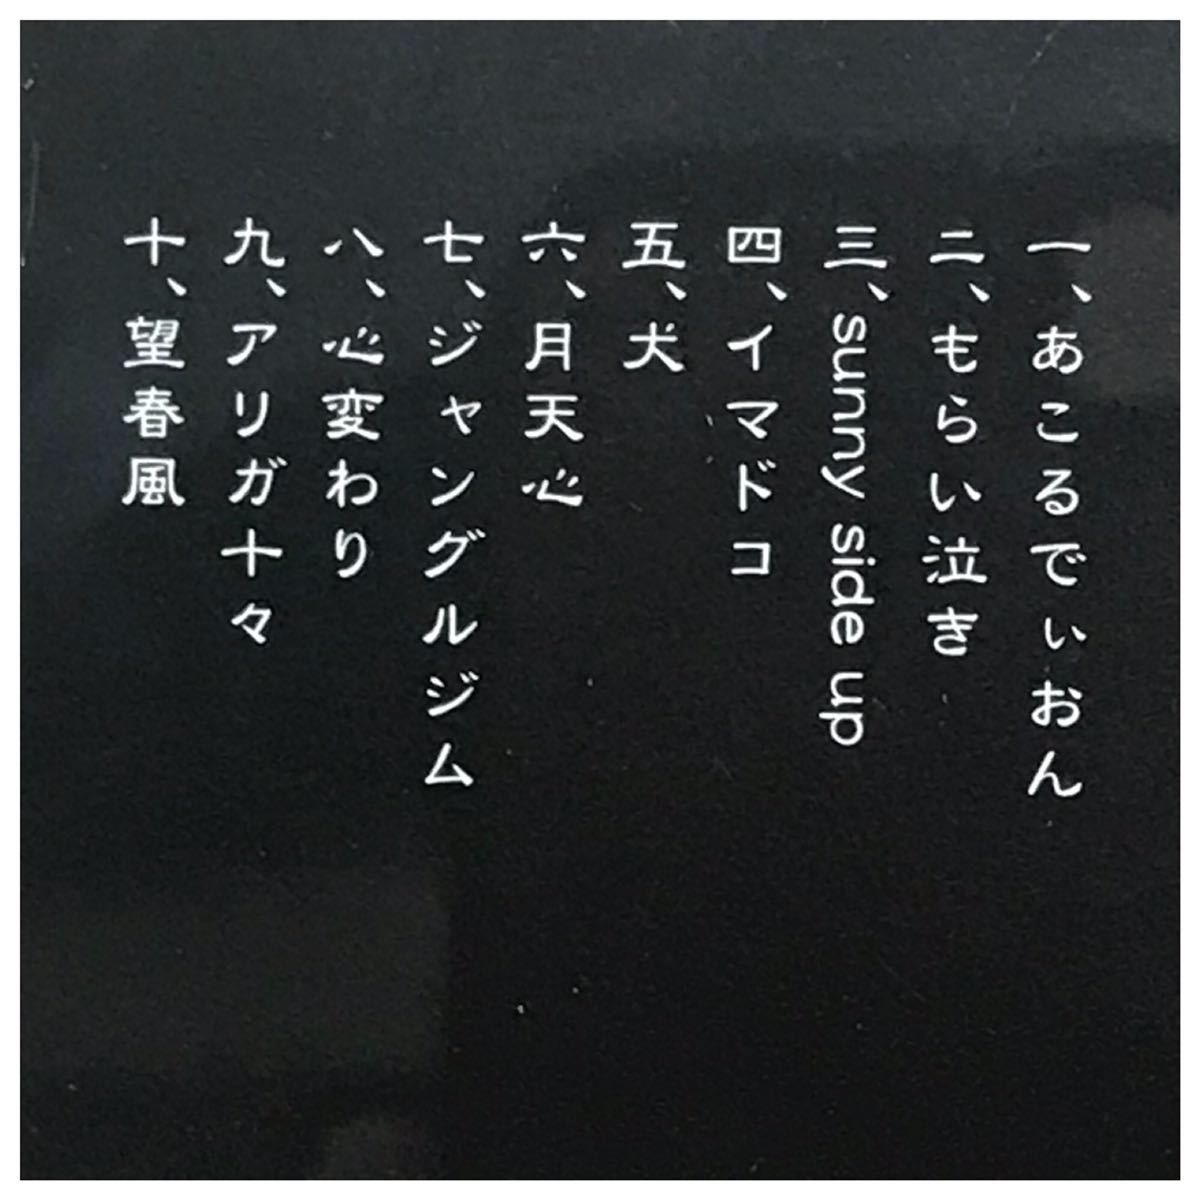 一、あこるでぃおん
二、もらい泣き
三、sunny side up
四、イマドコ
五、犬
六、月天心
七、ジャングルジム
八、心変わり
九、アリガ十々
十、望春風